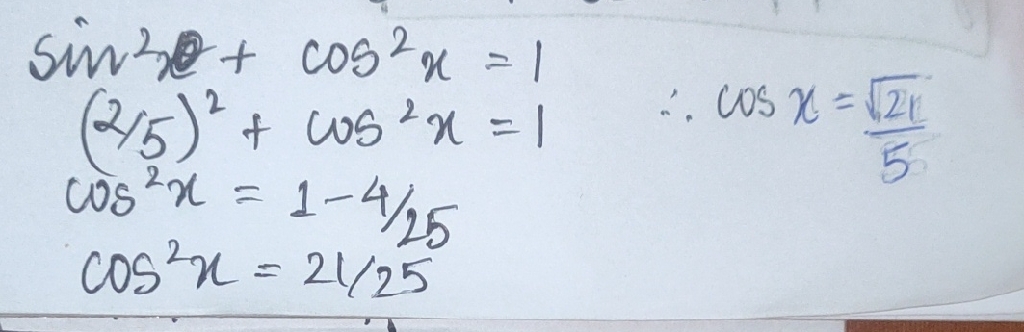 sin²x + cos²x = 1
(2/5)² + cos²x = 1
cos²x = 1-4/25
cos²x = 21/25
∴ cos x = √21/5